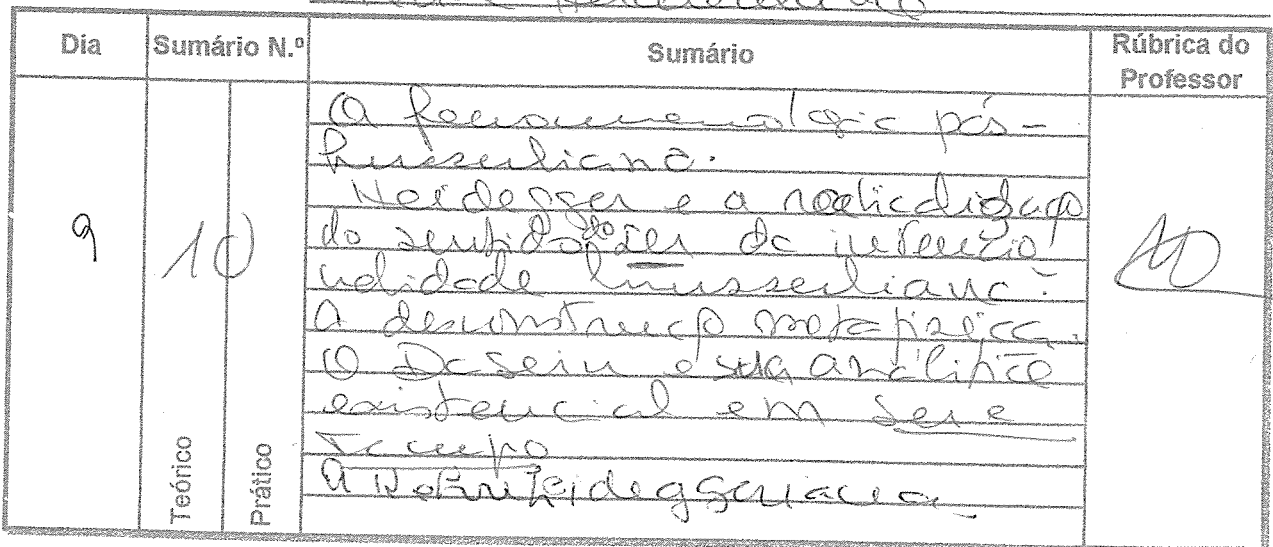 Dia Sumário N.º Sumário Rúbrica do Professor
9 10
A fenomenologia pós-
husserliana.
Heidegger e a radicalização
do sentido do ser da intencio
nalidade husserliana.
A desconstrução metafísica.
O Dasein e sua analítica
existencial em Ser e
Tempo
A heideggeriana
Teórico
Prático